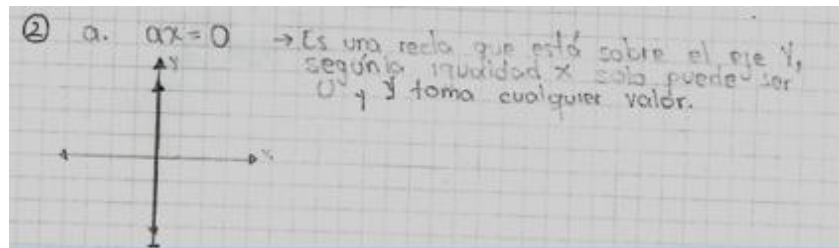 ② a. ax=0 → Es una recta que está sobre el eje Y,
según la igualdad X solo puede ser
0 y Y toma cualquier valor.
Y
X